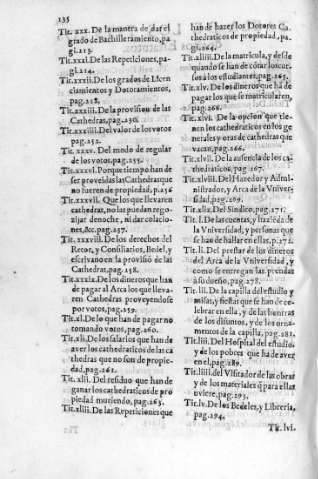 135
Tit. xxx. De la manera de dar el
grado de Bachilleramiento, pa
gi.213.
Tit. xxxi. De las Repeticiones, pa-
gi.214.
Tit. xxxii. De los grados de Licen
ciamientos y Dotoramientos,
pag.218.
Tit. xxxiii. De la prouision de las
Cathedras, pag.230.
Tit. xxxiiii. Del valor de los votos
pag.252.
Tit. xxxv. Del modo de regular
de los votos, pag.255.
Tit. xxxvi. Por que tiempo han de
ser proueidas las Cathedras que
no fueren de propiedad, p.256
Tit. xxxvii. Que los que lleuaren
cathedras, no las puedan rego-
zijar de noche, ni dar colacio-
nes, &c. pag.257.
Tit. xxxviii. De los derechos del
Retor, y Consiliarios, Bedel, y
escriuano en la prouisiõ de las
Cathedras, pag.258.
Tit. xxxix. De los dineros que han
de pagar al Arca los que lleua-
ren Cathedras proueyendose
por votos, pag.259.
Tit. xl. De lo que han de pagar no
tomando votos, pag.260.
Tit. xli. De los salarios que han de
auer los cathedraticos de las ca
thedras que no son de propie-
dad, pag.261.
Tit. xlii. Del residuo que han de
ganar los cathedraticos de pro
piedad muriendo, pag.263.
Tit. xliii. De las Repeticiones que
han de hazer los Dotores Ca-
thedraticos de propiedad, pa-
gi.264.
Tit. xliiii. De la matricula, y desde
quando se han de correr los cur-
sos a los estudiantes, pag.265.
Tit. xlv. De los dineros que ha de
pagar los que se matricularen,
pag.266.
Tit. xlvi. De la opcion que tie-
nen los cathedraticos en los ge
nerales y oras de cathedras que
vacan, pag.266.
Tit. xlvii. De la ausencia de los ca-
thedraticos, pag.267.
Tit. xlviii. Del Hazedor y Admi-
nistrador, y Arca de la Vniuer-
sidad, pag.269.
Tit. xlix. Del Sindico, pag.271.
Tit. l. De las cuentas, y hazienda de
la Vniuersidad, y personas que
se han de hallar en ellas, p.272.
Tit. li. Del prestar de los dineros
del Arca de la Vniuersidad, y
como se entregan las prendas
a su dueño, pag.278.
Tit. lii. De la capilla del estudio y
missas, y fiestas que se han de ce-
lebrar en ella, y de las honrras
de los difuntos, y de los orna-
mentos de la capilla, pag.281.
Tit. liii. Del Hospital del estudio,
y de los pobres que ha de auer
en el, pag.289.
Tit. liiii. Del Visitador de las obras
y de los materiales q̃ para ellas
vuiere, pag.293.
Tit. lv. De los Bedeles, y Libreria,
pag.294.
Tit. lvi.